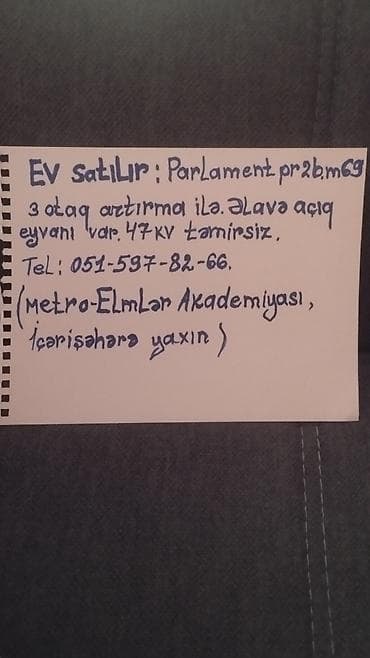 Ev satılır: Parlament pr2b.m69
3 otaq artırma ilə. Əlavə açıq
eyvanı var. 47kv təmirsiz.
Tel: 051-597-82-66.
(Metro-Elmlər Akademiyası,
İçərişəhərə yaxın)